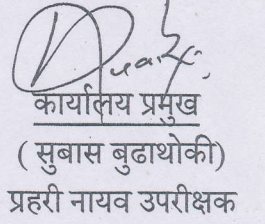 कार्यालय प्रमुख
( सुबास बुढाथोकी)
प्रहरी नायव उपरीक्षक